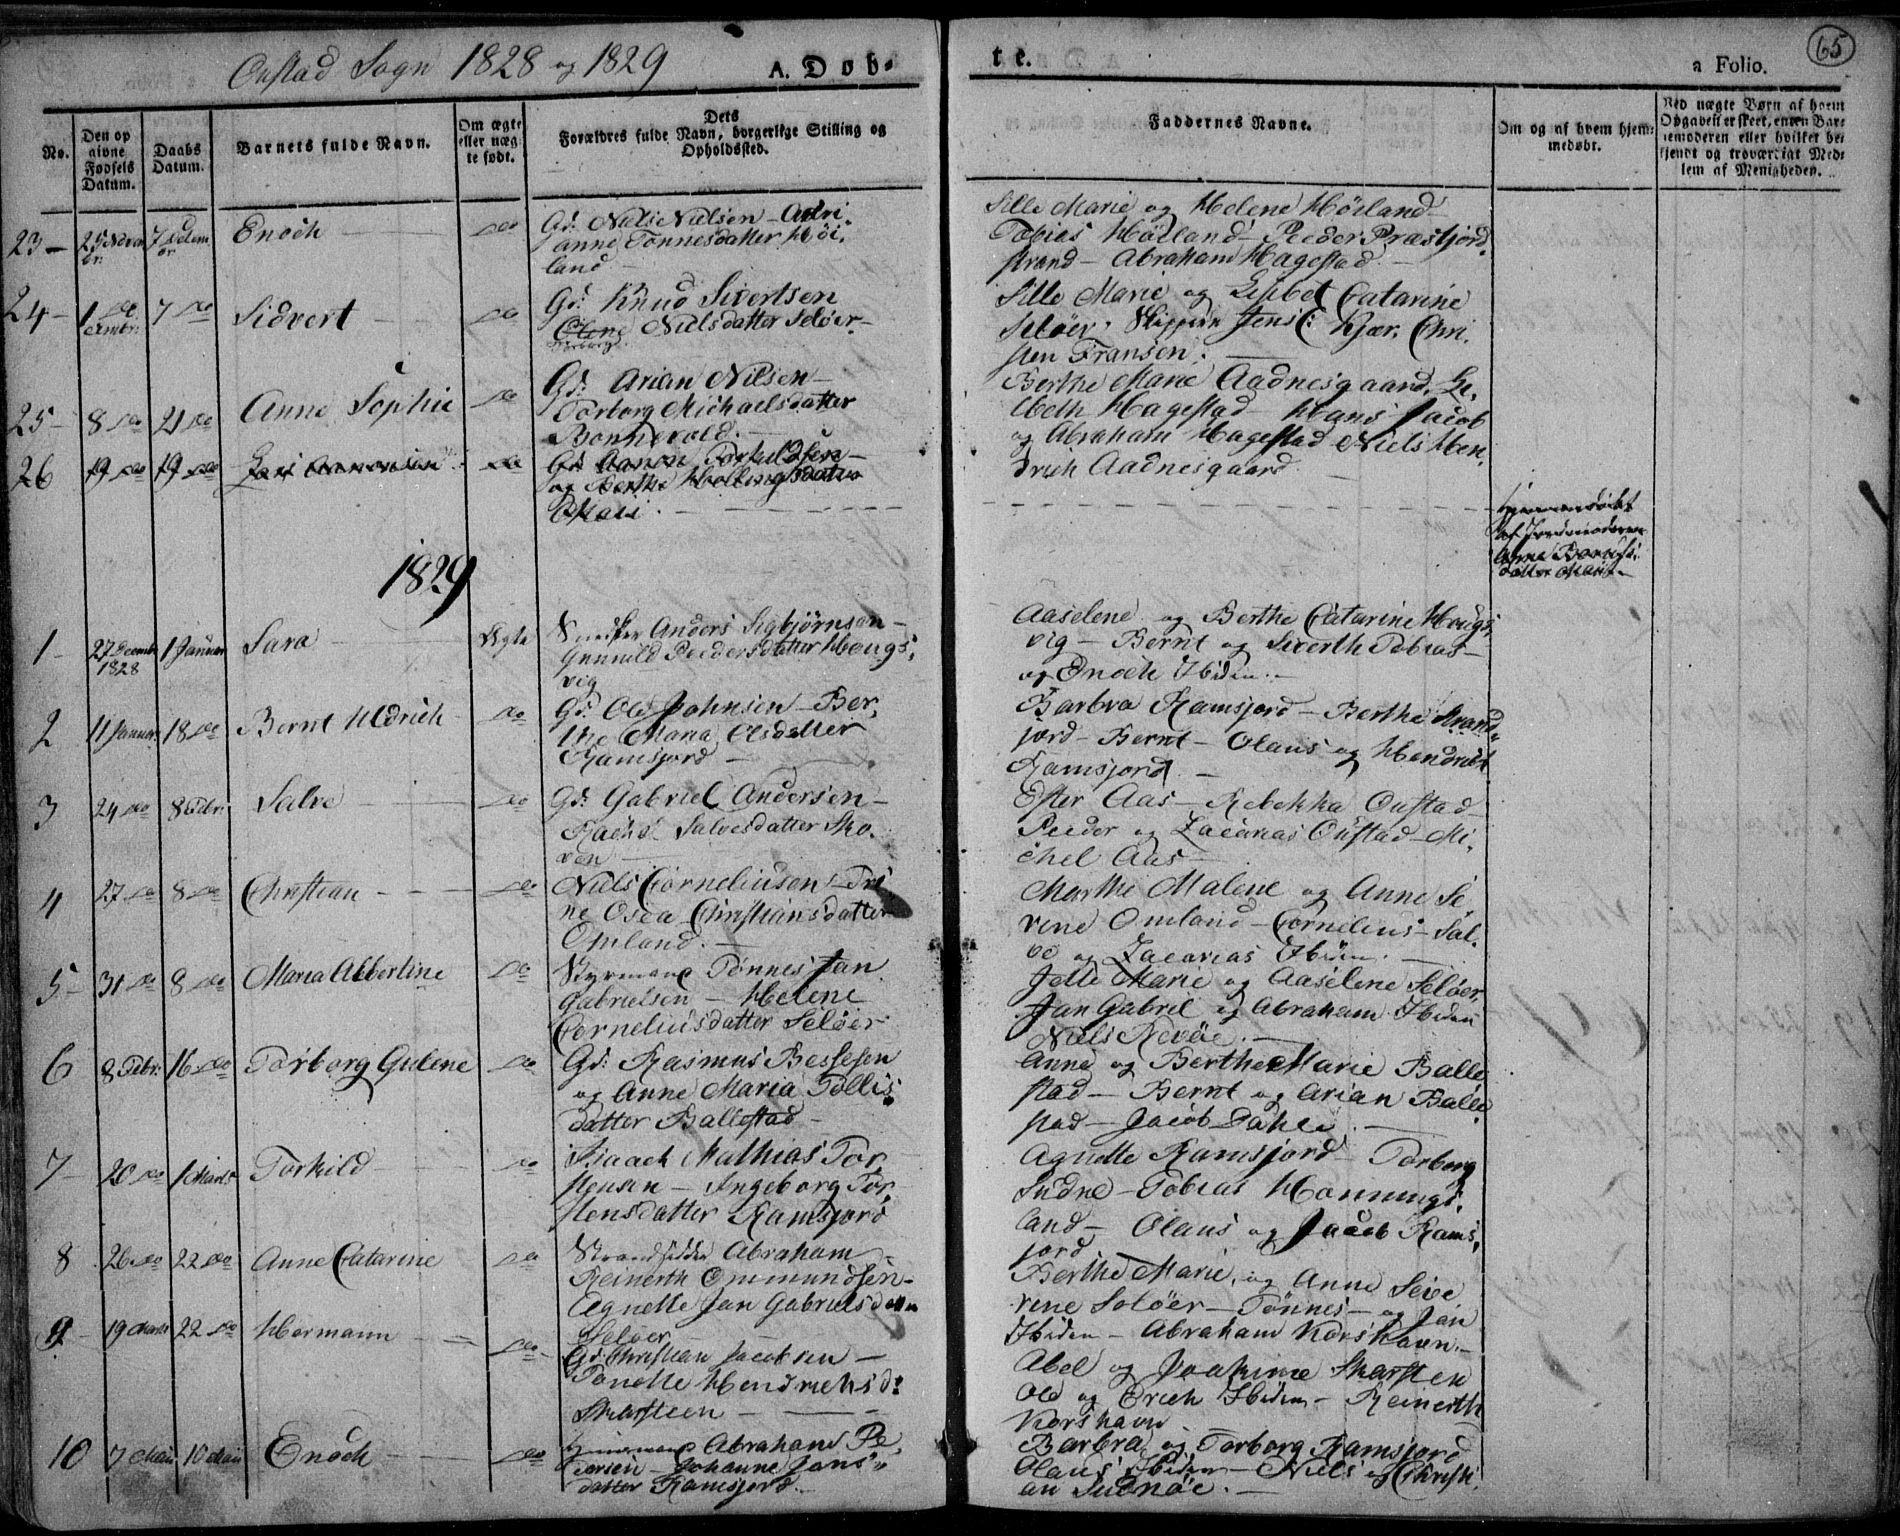 Oustad Sogn 1828 og 1829
A. Døb-
te.
a Folio.
65
No.
Den op
givne
Fødsels
Datum.
Daabs
Datum.
Barnets fulde Navn.
Om ægte
eller uæg-
te født.
Dets
Forældres fulde Navn, borgerlige Stilling og
Opholdssted.
Faddernes Navne.
Om og af hvem hjem-
medøbt.
Ved uægte Børn af hvem
Opgaven er skeet, enten Bar-
nemoderen eller hvilket be-
kjendt og troværdigt Med-
lem af Menigheden.
23 - 25 Novem
br. 7 Decem
br. Enoch do Gd: Niels Nielsen - Adri-
anne Tønnesdatter Høi-
land
Sille Marie og Helene Höiland
Tobias Höiland - Peeder Præstfjord
strand - Abraham Hagestad
24 - 1 De
cembr: 7 do Sidvert do Gd: Knud Sivertsen
Olene Nielsdatter Seløer
Torborg
Sille Marie og Lisbet Catarine
Seløer, Skipper Jens C: Kjær, Chri-
sten Fransen.
25 - 8 do 21 do Anne Sophie do Gd: Arian Nilsen -
Torborg Michaelsdatter
Bonnevold.
Berthe Marie Aadnesgaard, Li-
sbeth Hagestad - Hans Jacob
og Abraham Hagestad Niels Hen-
drich Aadnesgaard
26 19 do 19 do do Gd: Aanon Torkildsen
og Berthe Hellingsdatter
1829
1 - 27 Decembr
1828 1 Januar Sara Ægte Snedker Anders Sigbjørnsen -
Gunnild Peedersdatter Haugs-
vig
Aaselene og Berthe Catarine Haugs-
vig - Bernt og Siverth Tobias
og Enoch Ibiden.
2 11 Januar 18 do Bernt Uldrich do Gd. Ole Johnsen - Ber-
the Maria Olsdatter
Ramsfjord
Barbra Ramsfjord - Berthe Strand-
fjord - Bernt - Olaus og Hendrich
Ramsfjord.
3 24 do 8 Febr: Salve do Gd: Gabriel Andersen -
Rachel Salvesdatter Sko-
ven
Ester Aas - Rebekka Oustad
Peeder og Zacarias Oustad - Mi-
chel Aas
4 27 do 8 do Christian do Niels Corneliusen - Tri-
ne Osea Christiansdatter
Omland.
Marthe Malene og Anne Se-
verine Omland - Cornelius - Sal-
ve og Zacarias Ibiden.
5 - 31 do 8 do Maria Albertine do Styrmand Tønnes Jan
Gabrielsen - Helene
Corneliusdatter Seløer
Jelle Marie og Aaselene Seløer,
Jan Gabriel og Abraham Ibiden
Niels Revøe.
6 8 Febr: 16 do Torborg Gulene do Gd: Rasmus Bessesen
og Anne Maria Tollis-
datter Ballestad
Anne og Berthe Marie Balle
stad - Bernt og Arian Balle
stad - Jacob Dahle.
7 - 20 do 1 Marts Torkild do Isaach Mathias Tor-
stensen - Ingeborg Tor-
stensdatter Ramsfjord
Agnette Ramsfjord - Torborg
Sudne - Tobias Hannings-
land - Olaus og Jacob Rams-
fjord
8 26 do 22 do Anne Catarine do Strandsidder Abraham
Reinerth Ommundsen -
Agnette Jan Gabrielsdatter
Seløer
Berthe Marie, og Anne Seve
rine Seløer - Tønnes - og Jan
Ibiden - Abraham Korshavn -
9 - 19 Marts 22 do Hermann do Gd: Christian Jacobsen -
Tonette Hendrichsd:
Skarsteen
Abel og Joakime Skarsten
Ole og Erich Ibiden - Reinerth
Korshavn
10 7 Maii 10 Maii Enoch do Abraham Pe-
dersen - Johanne Jans-
datter Ramsfjord.
Barbra og Torborg Ramsfjord
Olaus Ibiden - Niels og Christi-
an Sudnøe.